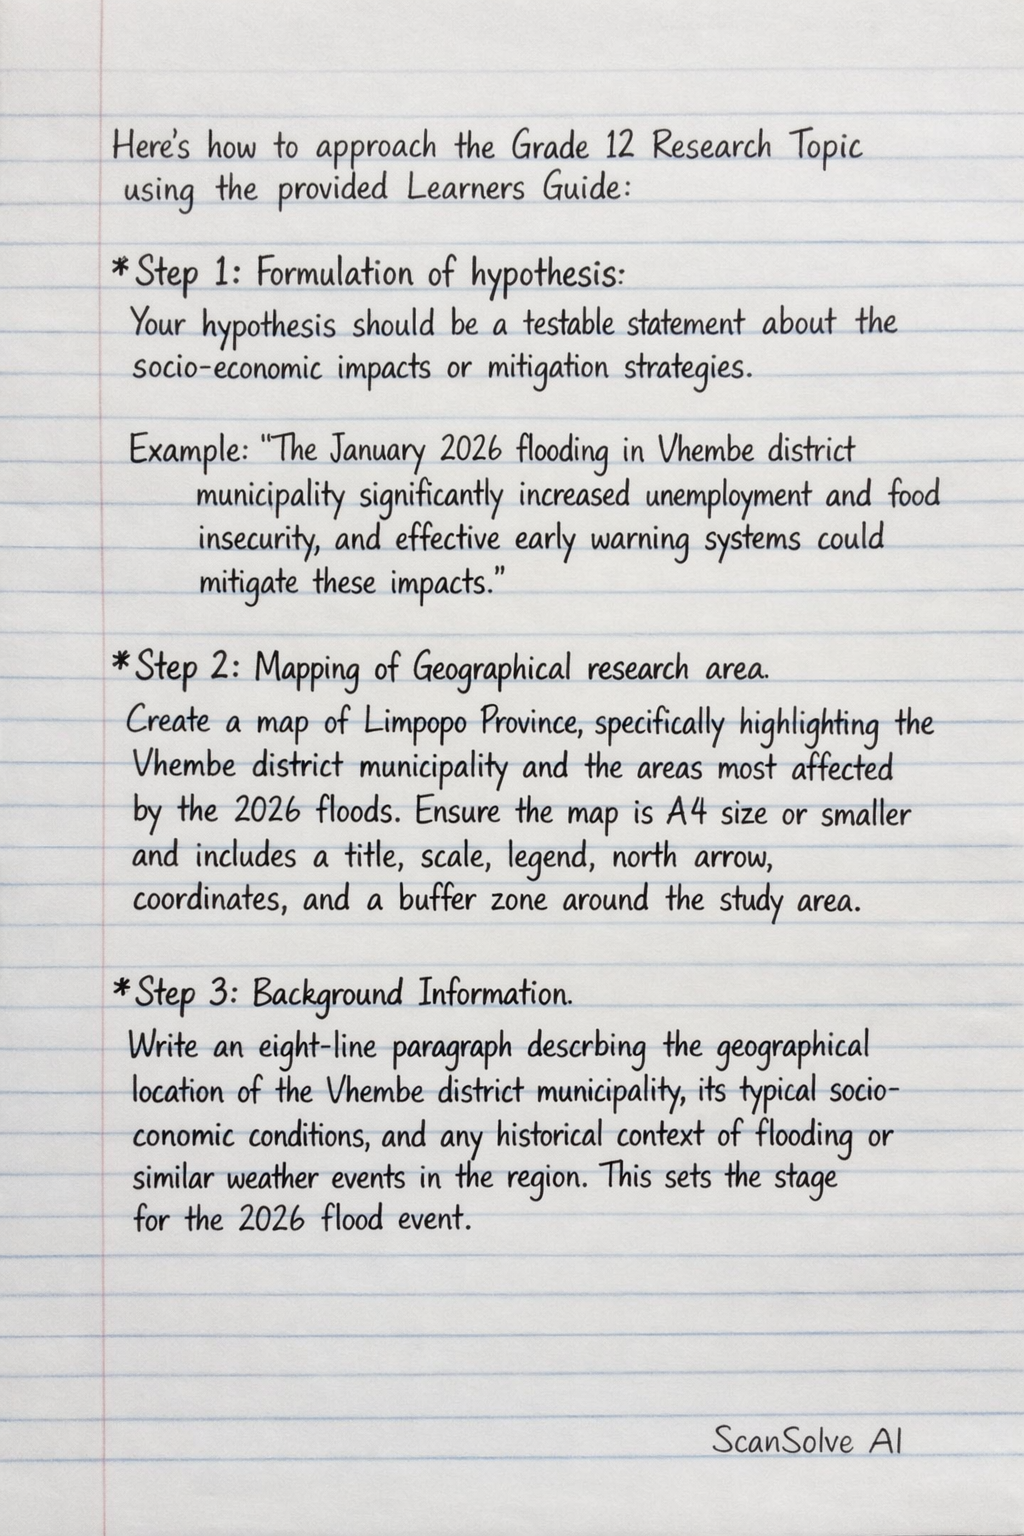 Here's how to approach the Grade 12 Research Topic
using the provided Learners Guide:
*Step 1: Formulation of hypothesis:
Your hypothesis should be a testable statement about the
socio-economic impacts or mitigation strategies.
Example: "The January 2026 flooding in Vhembe district
municipality significantly increased unemployment and food
insecurity, and effective early warning systems could
mitigate these impacts."
*Step 2: Mapping of Geographical research area.
Create a map of Limpopo Province, specifically highlighting the
Vhembe district municipality and the areas most affected
by the 2026 floods. Ensure the map is A4 size or smaller
and includes a title, scale, legend, north arrow,
coordinates, and a buffer zone around the study area.
*Step 3: Background Information.
Write an eight-line paragraph descrbing the geographical
location of the Vhembe district municipality, its typical socio-
conomic conditions, and any historical context of flooding or
similar weather events in the region. This sets the stage
for the 2026 flood event.
ScanSolve AI